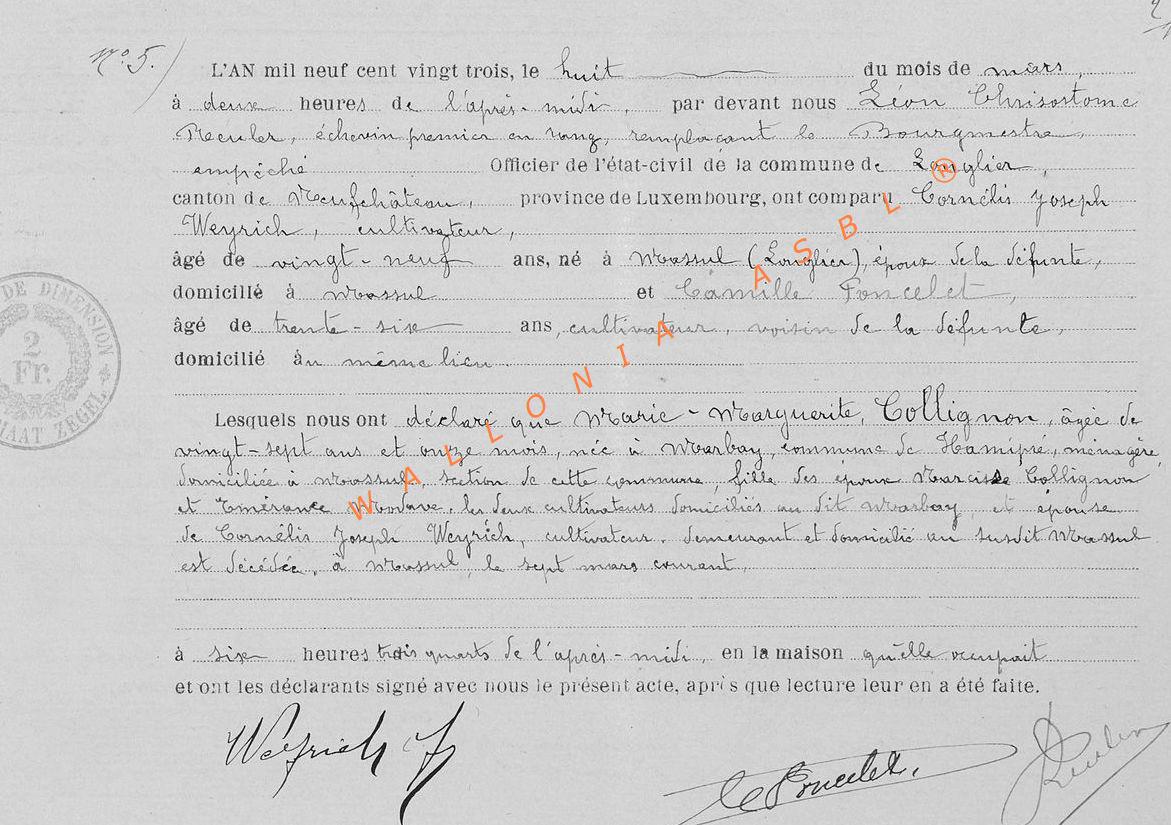 N° 5.
L'AN mil neuf cent vingt trois, le huit du mois de mars,
à deux heures de l'après-midi, par devant nous Léon Chrisostome
Reuler, échevin premier en rang, remplaçant le Bourgmestre,
empêché Officier de l'état-civil de la commune de Longlier,
canton de Neufchâteau, province de Luxembourg, ont comparu Cornélis Joseph
Weyrich, cultivateur,
âgé de vingt-neuf ans, né à Massul (Longlier), époux de la défunte,
domicilié à Massul et Camille Poncelet,
âgé de trente-six ans, cultivateur, voisin de la défunte,
domicilié au même lieu.
Lesquels nous ont déclaré que Marie-Marguerite, Collignon, âgée de
vingt-sept ans et onze mois, née à Marbay, commune de Hamipré, ménagère,
domiciliée à Massul, section de cette commune, fille des époux Narcisse Collignon
et Emérance Modave, les deux cultivateurs domiciliés au dit Marbay, et épouse
de Cornélis Joseph Weyrich, cultivateur, demeurant et domicilié au susdit Massul
est décédée, à Massul, le sept mars courant,
à six heures trois quarts de l'après-midi, en la maison qu'elle occupait
et ont les déclarants signé avec nous le présent acte, après que lecture leur en a été faite.
Weyrich J
C Poncelet.
WALLONIA ASBL ®
DE DIMENSION
2
Fr.
MAAT ZEGEL